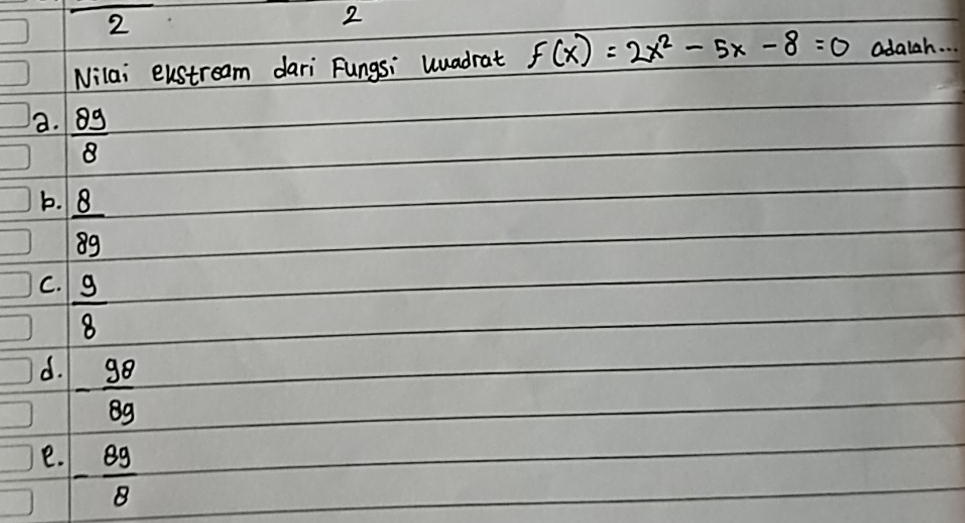 2 2
Nilai ekstream dari Fungsi kuadrat f(x) = 2x² - 5x - 8 = 0 adalah...
a. 89
8
b. 8
89
c. 9
8
d. - 98
89
e. - 89
8